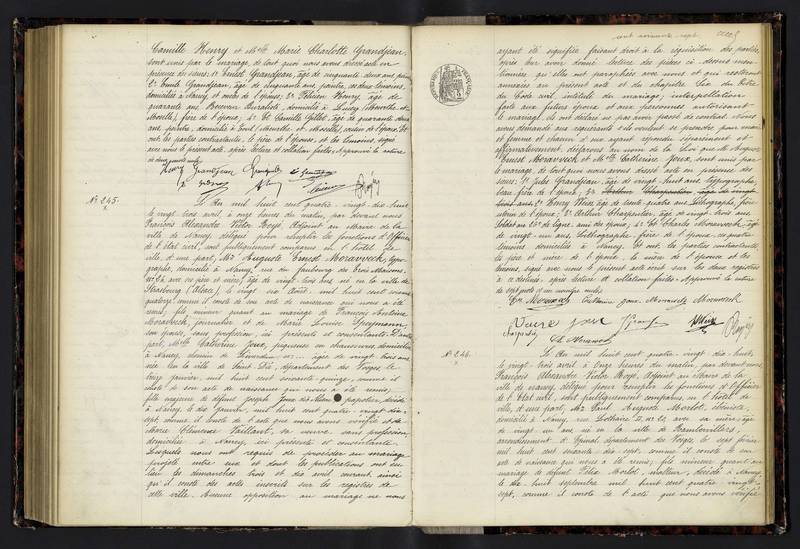 Camille Henry et Mlle Marie Charlotte Grandjean,
sont unis par le mariage, de tout quoi nous avons dressé acte en
présence des sieurs: 1° Ernest Grandjean, âgé de cinquante deux ans,
2° Emile Grandjean, âgé de cinquante ans, peintre, ces deux témoins,
domiciliés à Nancy et oncles de l'épouse; 3° Henry, âgé de
quarante ans, Receveur Buraliste, domicilié à (Meurthe-et-
Moselle), frère de l'époux; 4° et Camille Gillot, âgé de quarante deux
ans, peintre, domicilié à Toul (Meurthe-et-Moselle), cousin de l'épouse. Et
ont les parties contractantes, le père de l'épouse, et les témoins, signé
avec nous le présent acte, après lecture et collation faites. Approuvé la rature
de
Henry Grandjean
N° 245.
L'An mil huit cent quatre-vingt-dix huit,
le vingt trois avril, à onze heures du matin, par devant nous
François Alexandre Victor Adjoint au Maire de la
ville de Nancy, délégué pour remplir les fonctions d'Officier
de l'état civil, sont publiquement comparus en l'hôtel de
ville, d'une part, Mr Auguste Ernest Moravveck, typo-
graphe, domicilié à Nancy, rue du faubourg des Trois Maisons,
avec ses père et mère, âgé de vingt-trois ans, né en la ville de
Strasbourg (Alsace), le vingt six Août, mil huit cent soixante
quatorze, comme il conste de son acte de naissance qui nous a été
remis; fils mineur quant au mariage de François Antoine
Moravveck, journalier et de Marie Louise
son épouse, sans profession, ici présents et consentants. D'autre
part, Mlle Catherine Joux, piqueuse en chaussures, domiciliée
à Nancy, chemin de âgée de vingt trois ans
née en la ville de Saint-Dié, département des Vosges, le
janvier, mil huit cent soixante quinze, comme il
conste de son acte de naissance qui nous a été remis;
fille majeure de défunt Joseph Joux papetier, décédé
à Nancy, le dix Janvier, mil huit cent quatre-vingt-dix-
sept, comme il conste de l'acte que nous avons vérifié et de
Marie Clémence Vaillant, sa veuve sans profession
domiciliée à Nancy, ici présente et consentante.
Lesquels nous ont requis de procéder au mariage
projeté entre eux et dont les publications ont eu
lieu les dimanches trois et dix avril courant, ainsi
qu'il conste des actes inscrits sur les registres de
cette ville. Aucune opposition au mariage ne nous
cent soixante-sept
ayant été signifiée faisant droit à la réquisition des parties,
après leur avoir donné lecture des pièces ci-dessus men-
tionnées qu'elles ont paraphées avec nous et qui resteront
annexées au présent acte et du chapitre Six du titre
du Code civil, intitulé du mariage, interpellation
faite aux futurs époux et aux personnes autorisant
le mariage, ils ont déclaré ne pas avoir passé de contrat. Nous
avons demandé aux requérants s'ils veulent se prendre pour mari
et femme et chacun d'eux ayant répondu séparément et
affirmativement, déclarons au nom de la Loi que Mr Auguste
Ernest Moravveck et Mlle Catherine Joux, sont unis par
le mariage, de tout quoi nous avons dressé acte en présence des
sieurs: 1° Jules Grandjean, âgé de vingt huit ans, typographe,
beau-frère de l'époux; 2° Arthur Charpentier, âgé de vingt
trois ans 2° Henry âgé de trente quatre ans, lithographe, frère
utérin de l'époux; 3° Arthur Charpentier, âgé de vingt-trois ans
soldat au de ligne, ami des époux; 4° et Charles Moravveck, âgé
de vingt-un ans, lithographe, frère de l'époux, ces quatre
témoins domiciliés à Nancy. Et ont, les parties contractantes,
les père et mère de l'époux, la mère de l'épouse et les
témoins, signé avec nous le présent acte écrit sur les deux registres
à ce destinés, après lecture et collation faites. Approuvé la rature
de sept mots et un nombre nuls.
Moravveck Catherine Joux Moravveck Moravveck
Veuve Joux
Ch Moravveck
N° 246.
L'An mil huit cent quatre-vingt-dix huit,
le vingt-trois avril à onze heures du matin, par devant nous
François Alexandre Victor Adjoint au Maire de la
ville de Nancy, délégué pour remplir les fonctions d'Officier
de l'état civil, sont publiquement comparus, en l'hôtel de
ville, d'une part, Mr Paul Auguste Morlot, ébéniste,
domicilié à Nancy, rue Lothaire II, avec sa mère, âgé
de vingt un ans né en la ville de Rambervillers,
arrondissement d'Epinal, département des Vosges, le sept février
mil huit cent soixante-dix-sept, comme il conste de son
acte de naissance qui nous a été remis; fils mineur quant au
mariage de défunt Morlot, décédé à Nancy,
le dix-huit septembre mil huit cent quatre vingt
sept, comme il conste de l'acte que nous avons vérifié